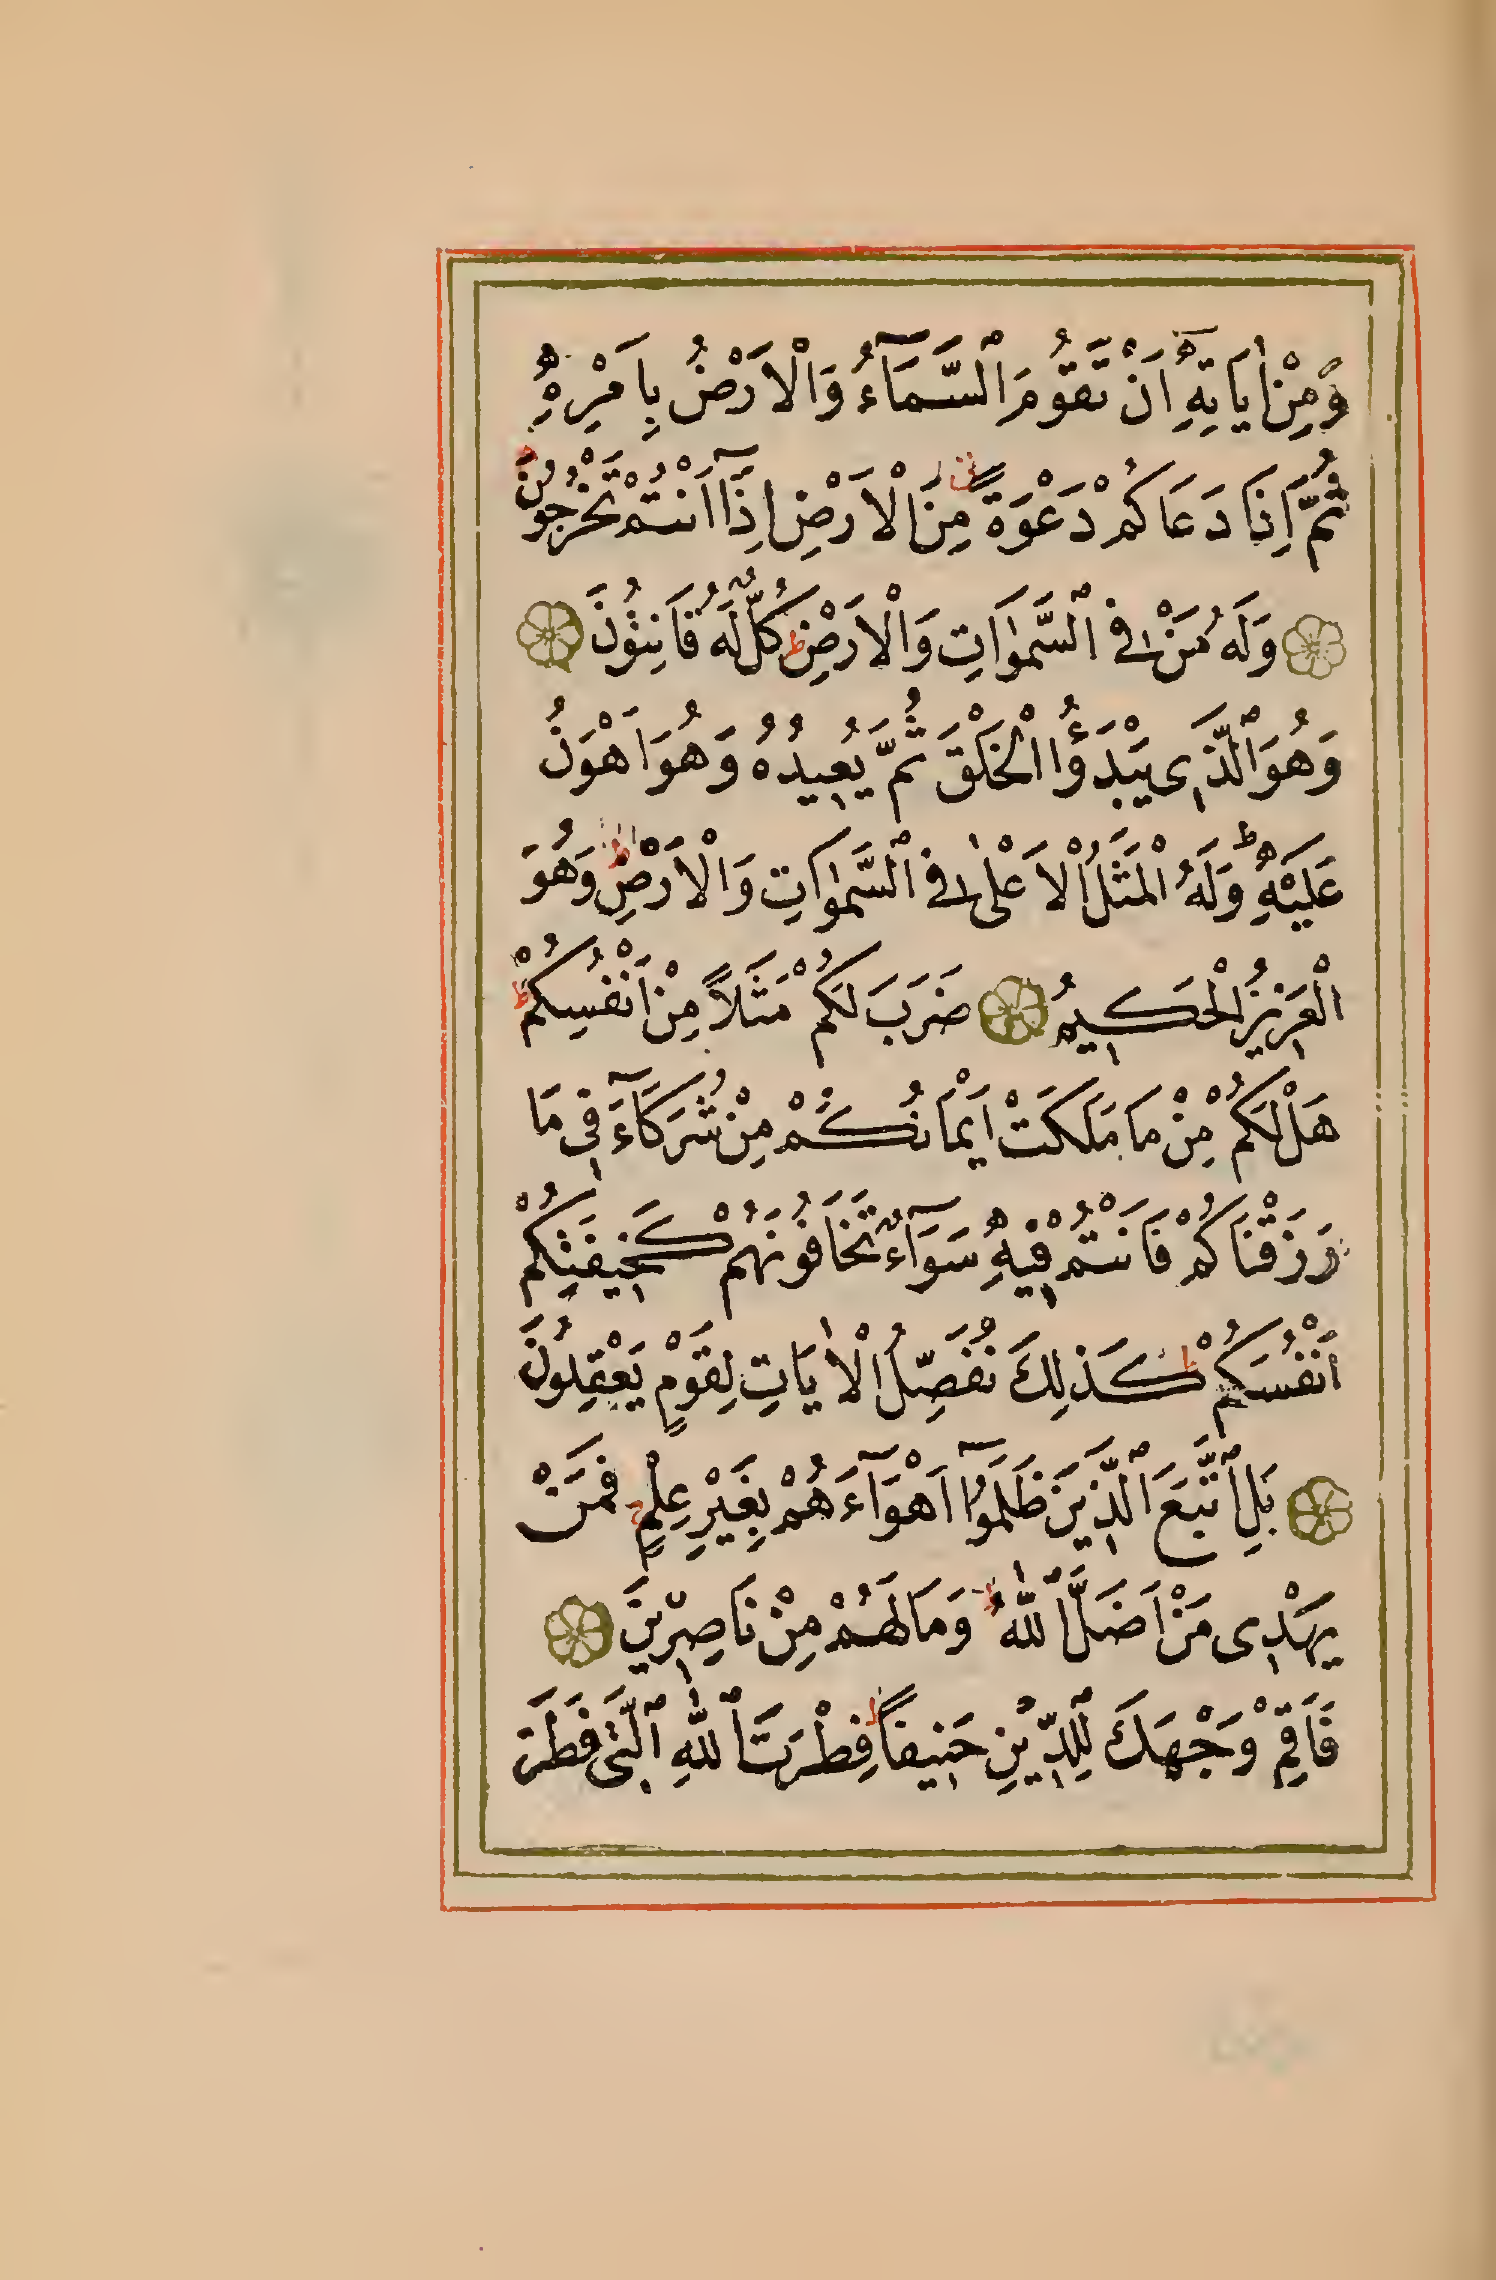 وَمِنْ اٰيَاتِهِ اَنْ تَقُومَ السَّمَآءُ وَالْاَرْضُ بِاَمْرِهِ
ثُمَّ اِذَا دَعَاكُمْ دَعْوَةً مِنَ الْاَرْضِ اِذَآ اَنْتُمْ تَخْرُجُونَ
وَلَهُ مَنْ فِى السَّمٰوَاتِ وَالْاَرْضِ ط كُلٌّ لَهُ قَانِتُونَ
وَهُوَ الَّذِى يَبْدَؤُا الْخَلْقَ ثُمَّ يُعِيدُهُ وَهُوَ اَهْوَنُ
عَلَيْهِ ط وَلَهُ الْمَثَلُ الْاَعْلٰى فِى السَّمٰوَاتِ وَالْاَرْضِ ط وَهُوَ
الْعَزِيزُ الْحَكِيمُ ضَرَبَ لَكُمْ مَثَلًا مِنْ اَنْفُسِكُمْ ط
هَلْ لَكُمْ مِنْ مَا مَلَكَتْ اَيْمَانُكُمْ مِنْ شُرَكَآءَ فِى مَا
رَزَقْنَاكُمْ فَاَنْتُمْ فِيهِ سَوَآءٌ تَخَافُونَهُمْ كَخِيفَتِكُمْ
اَنْفُسَكُمْ ط كَذٰلِكَ نُفَصِّلُ الْاٰيَاتِ لِقَوْمٍ يَعْقِلُونَ
بَلِ اتَّبَعَ الَّذِينَ ظَلَمُوٓا اَهْوَآءَهُمْ بِغَيْرِ عِلْمٍ ج فَمَنْ
يَهْدِى مَنْ اَضَلَّ اللّٰهُ ط وَمَا لَهُمْ مِنْ نَاصِرِينَ
فَاَقِمْ وَجْهَكَ لِلدِّينِ حَنِيفًا ط فِطْرَتَ اللّٰهِ الَّتِى فَطَرَ